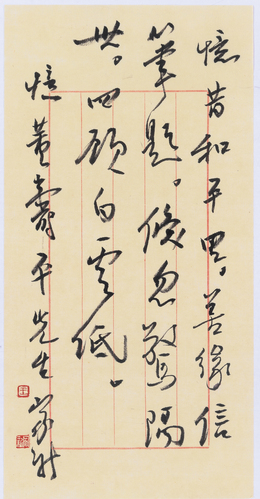 憶昔和平里。善緣信
筆題。倏忽驚隔
世。四顧白雲低。
憶董壽平先生